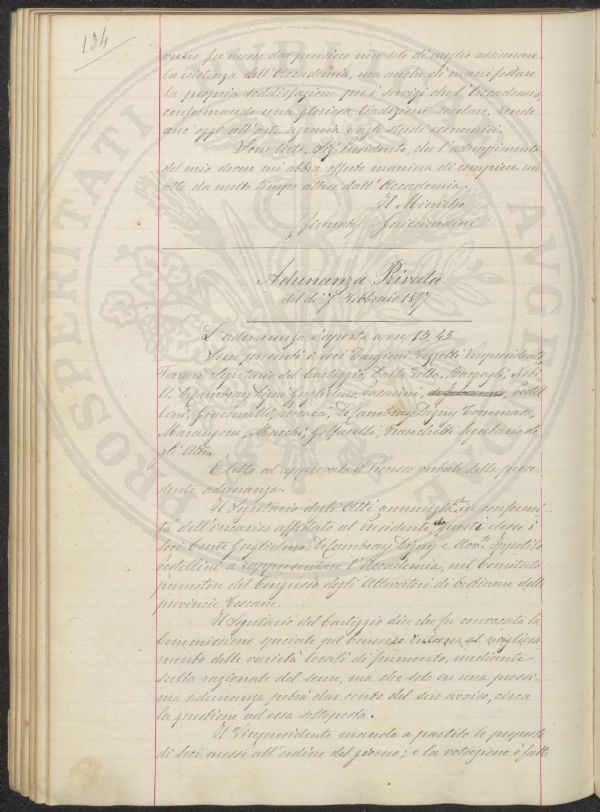 134
verno fu mosso dal pensiero non solo di meglio assicurare
la esistenza dell'Accademia, ma anche di manifestare
la propria soddisfazione per i servigi che l'Accademia,
continuando una gloriosa tradizione secolare, rende
anc'oggi all'arte agraria e agli studi economici.
Sono lieto, Sig. Presidente, che l'adempimento
del mio dovere mi abbia offerto maniera di compiere un
atto da molto tempo atteso dall'Accademia.
Il Ministro
(firmato) Guicciardini
Adunanza Privata
del dì 7 Febbraio 1897
L'adunanza è aperta a ore 13,45
Sono presenti i Soci Targioni Tozzetti Vicepresidente
Segretario del Carteggio, Dalla Volta,
De Cambray Digny Guglielmo, Passerini,
De Cambray Digny Tommaso,
Marangoni, Marchi, Segretario de
gli Atti.
È letto ed approvato il processo verbale della prece-
dente adunanza.
Il Segretario degli Atti annunzia che in conformi
tà dell'incarico affidato al Presidente, questi elesse i
Soci Conte Guglielmo De Cambray Digny e Ippolito
Pestellini a rappresentare l'Accademia, nel Comitato
promotore del Congresso degli Allevatori di bestiame delle
provincie Toscane.
Il Segretario del Carteggio dice che fu convocata la
Commissione speciale pel Concorso
mento delle varietà locali di frumento, mediante
scelta razionale del seme, ma che solo in una prossi-
ma adunanza potrà dar conto del suo avviso, circa
la questione ad essa sottoposta.
Il Vicepresidente manda a partito le proposte
di Soci messi all'ordine del giorno; e la votazione è fatt
PROSPERITATI PUBLICAE AUGENDAE